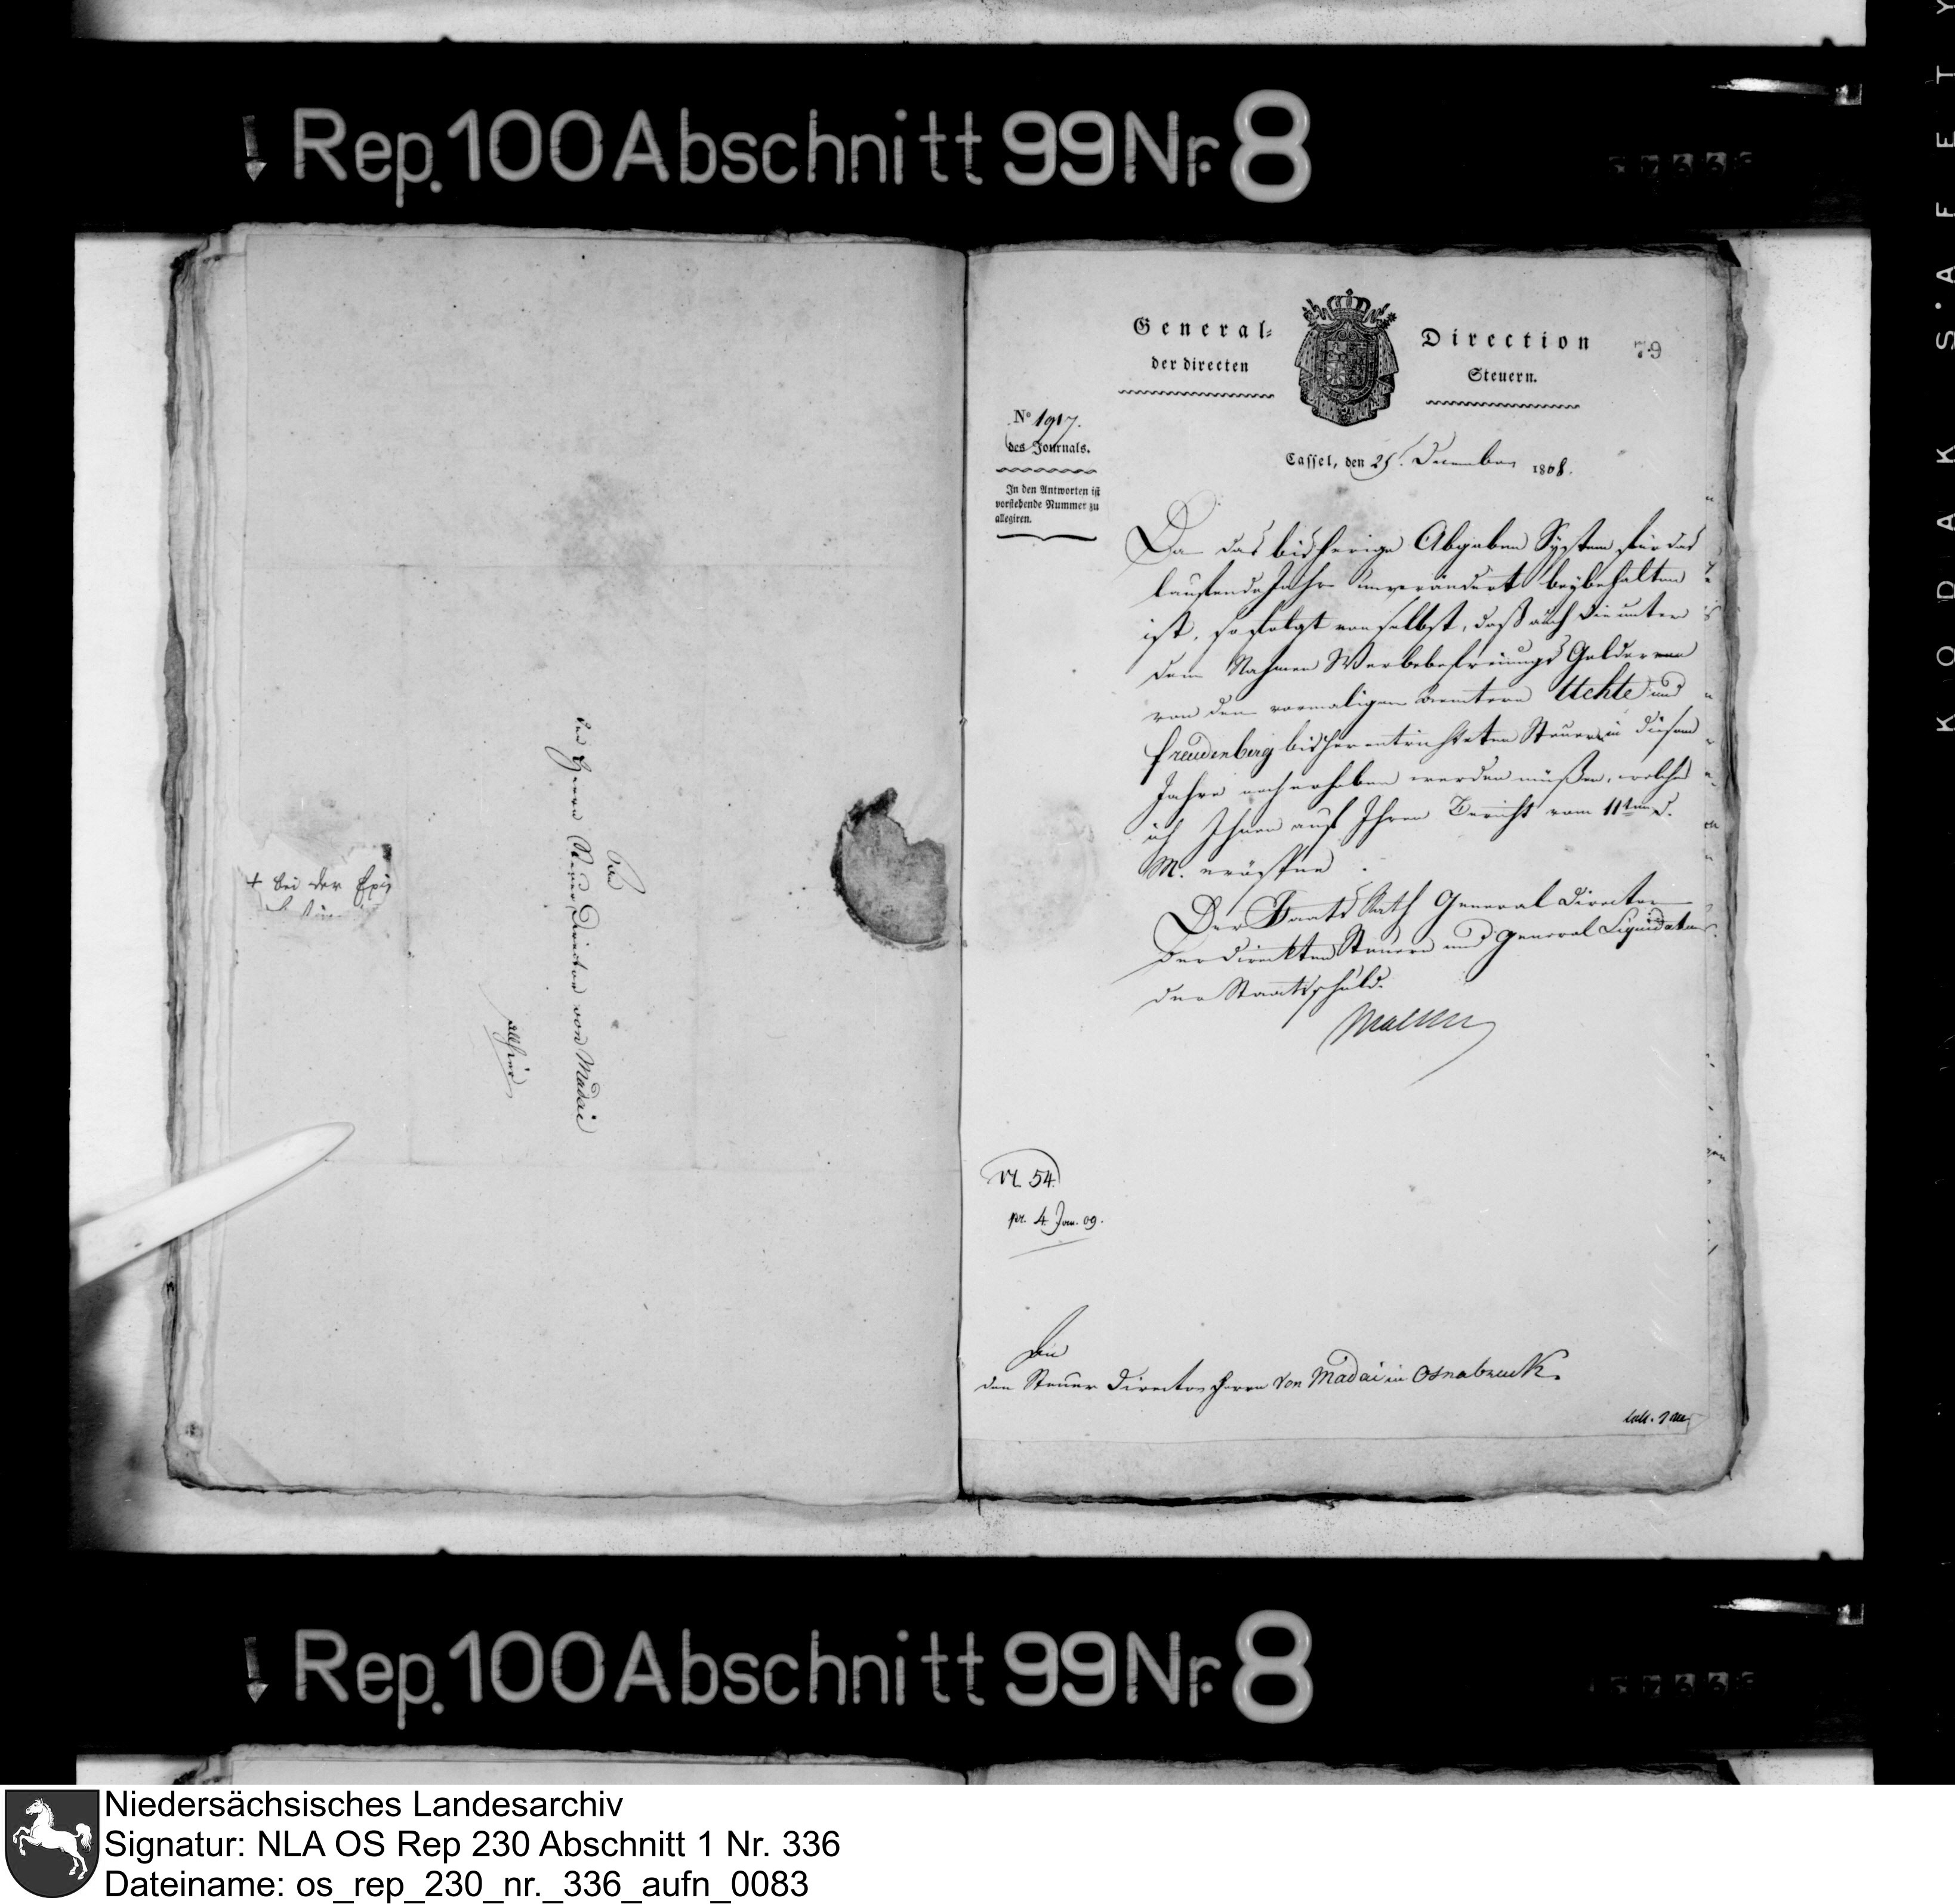 Rep. 100 Abschnitt 99 Nr. 8
An
den Herrn Steuer Director von Madai
allhier
+ bei der
General- Direction
der directen Steuern.
79
No 1917.
des Journals.
In den Antworten ist
vorstehende Nummer zu
allegiren.
Cassel, den 25. December 1808.
Da das bisherige Abgaben System für das
laufende Jahr unverändert beybehalten
ist, so folgt von selbst, daß auch die unter
dem Nahmen Werbebefreiungs Gelder
von den vormaligen Aemtern Uchte und
Freudenberg bisher entrichteten Steuern in diesem
Jahre noch erhoben werden müßen, welches
ich Ihnen auf Ihren Bericht vom 11ten d.
M. eröffne.
Der Staats Rath General Director
der direkten Steuern und General Liquidator
der Staatsschuld.
Malchus
N. 54.
pr. 4 Jan. 09.
An
den Steuer Director Herrn von Madai in Osnabrück.
Rep. 100 Abschnitt 99 Nr. 8
KODAK SAFETY
Niedersächsisches Landesarchiv
Signatur: NLA OS Rep 230 Abschnitt 1 Nr. 336
Dateiname: os_rep_230_nr._336_aufn_0083